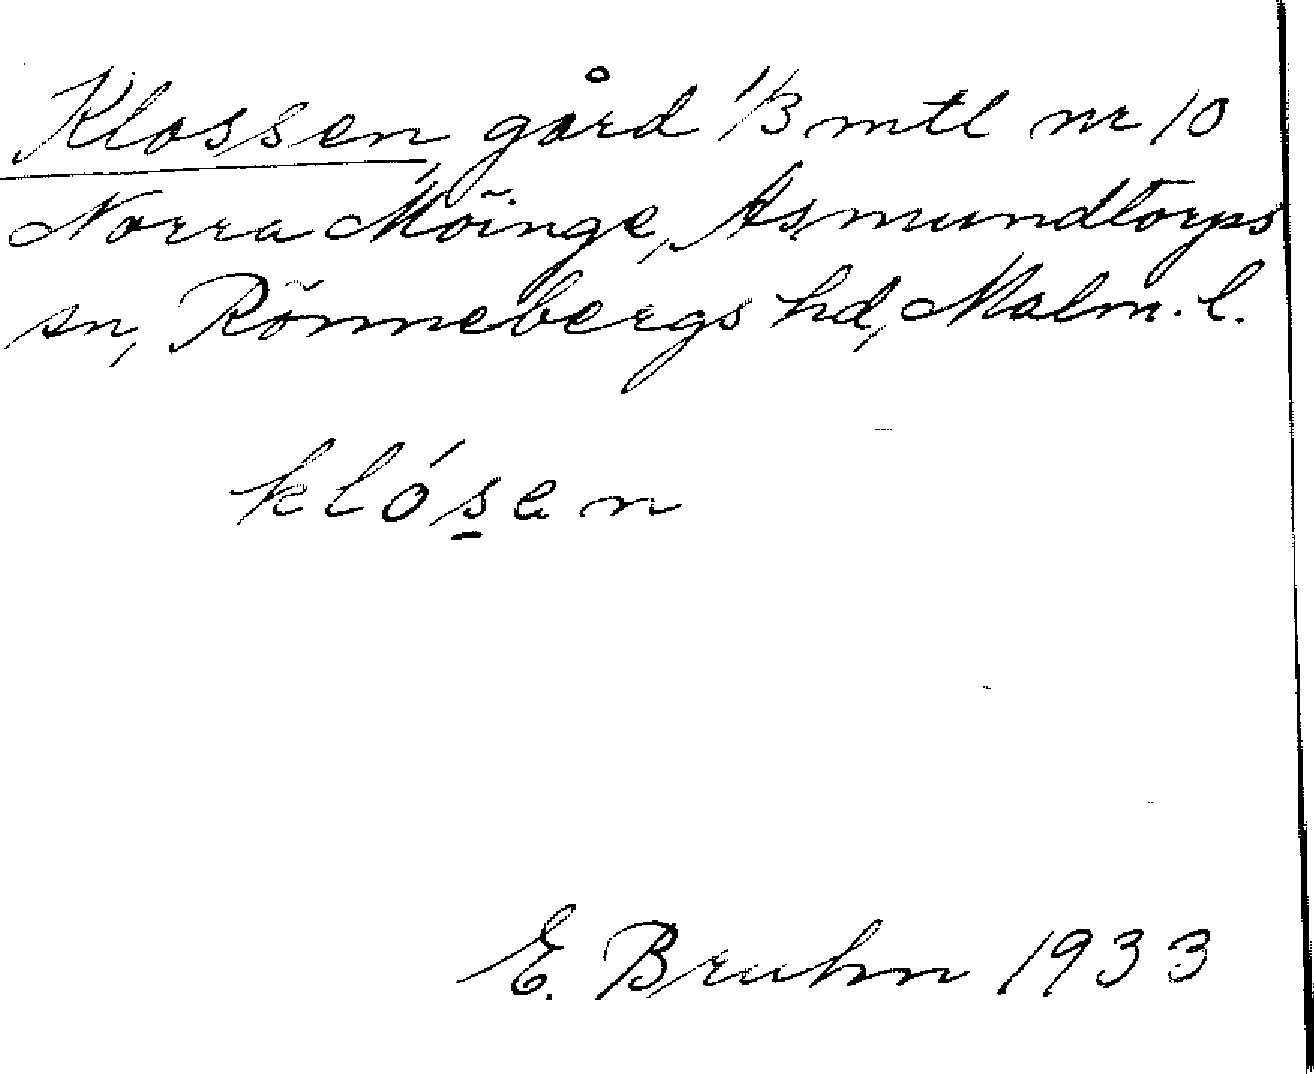 Klossen gård 1/3 mtl nr 10
Norra Möinge, Asmundtorps
sn, Rönnebergs hd, Malm. l.
klós̱en
E. Bruhn 1933